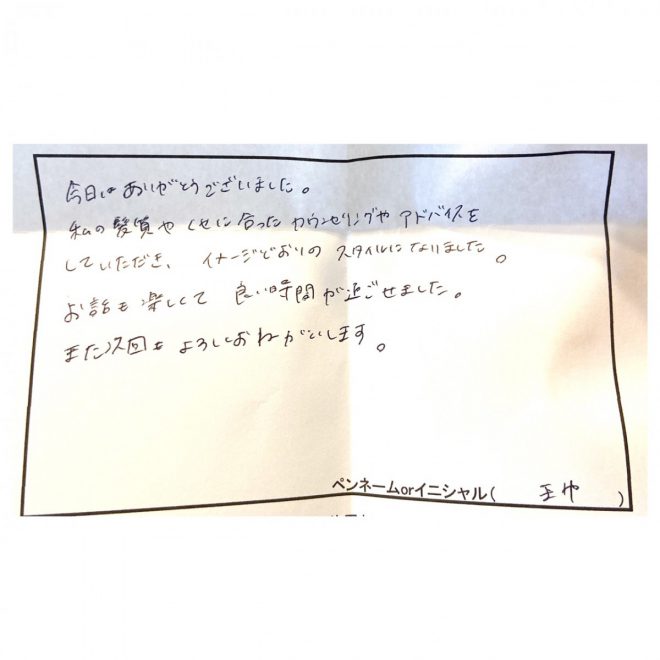 今日はありがとうございました。
私の髪質やくせに合ったカウンセリングやアドバイスを
していただき、イメージどおりのスタイルになりました。
お話も楽しくて良い時間が過ごせました。
また次回もよろしくおねがいします。
ペンネームorイニシャル( )